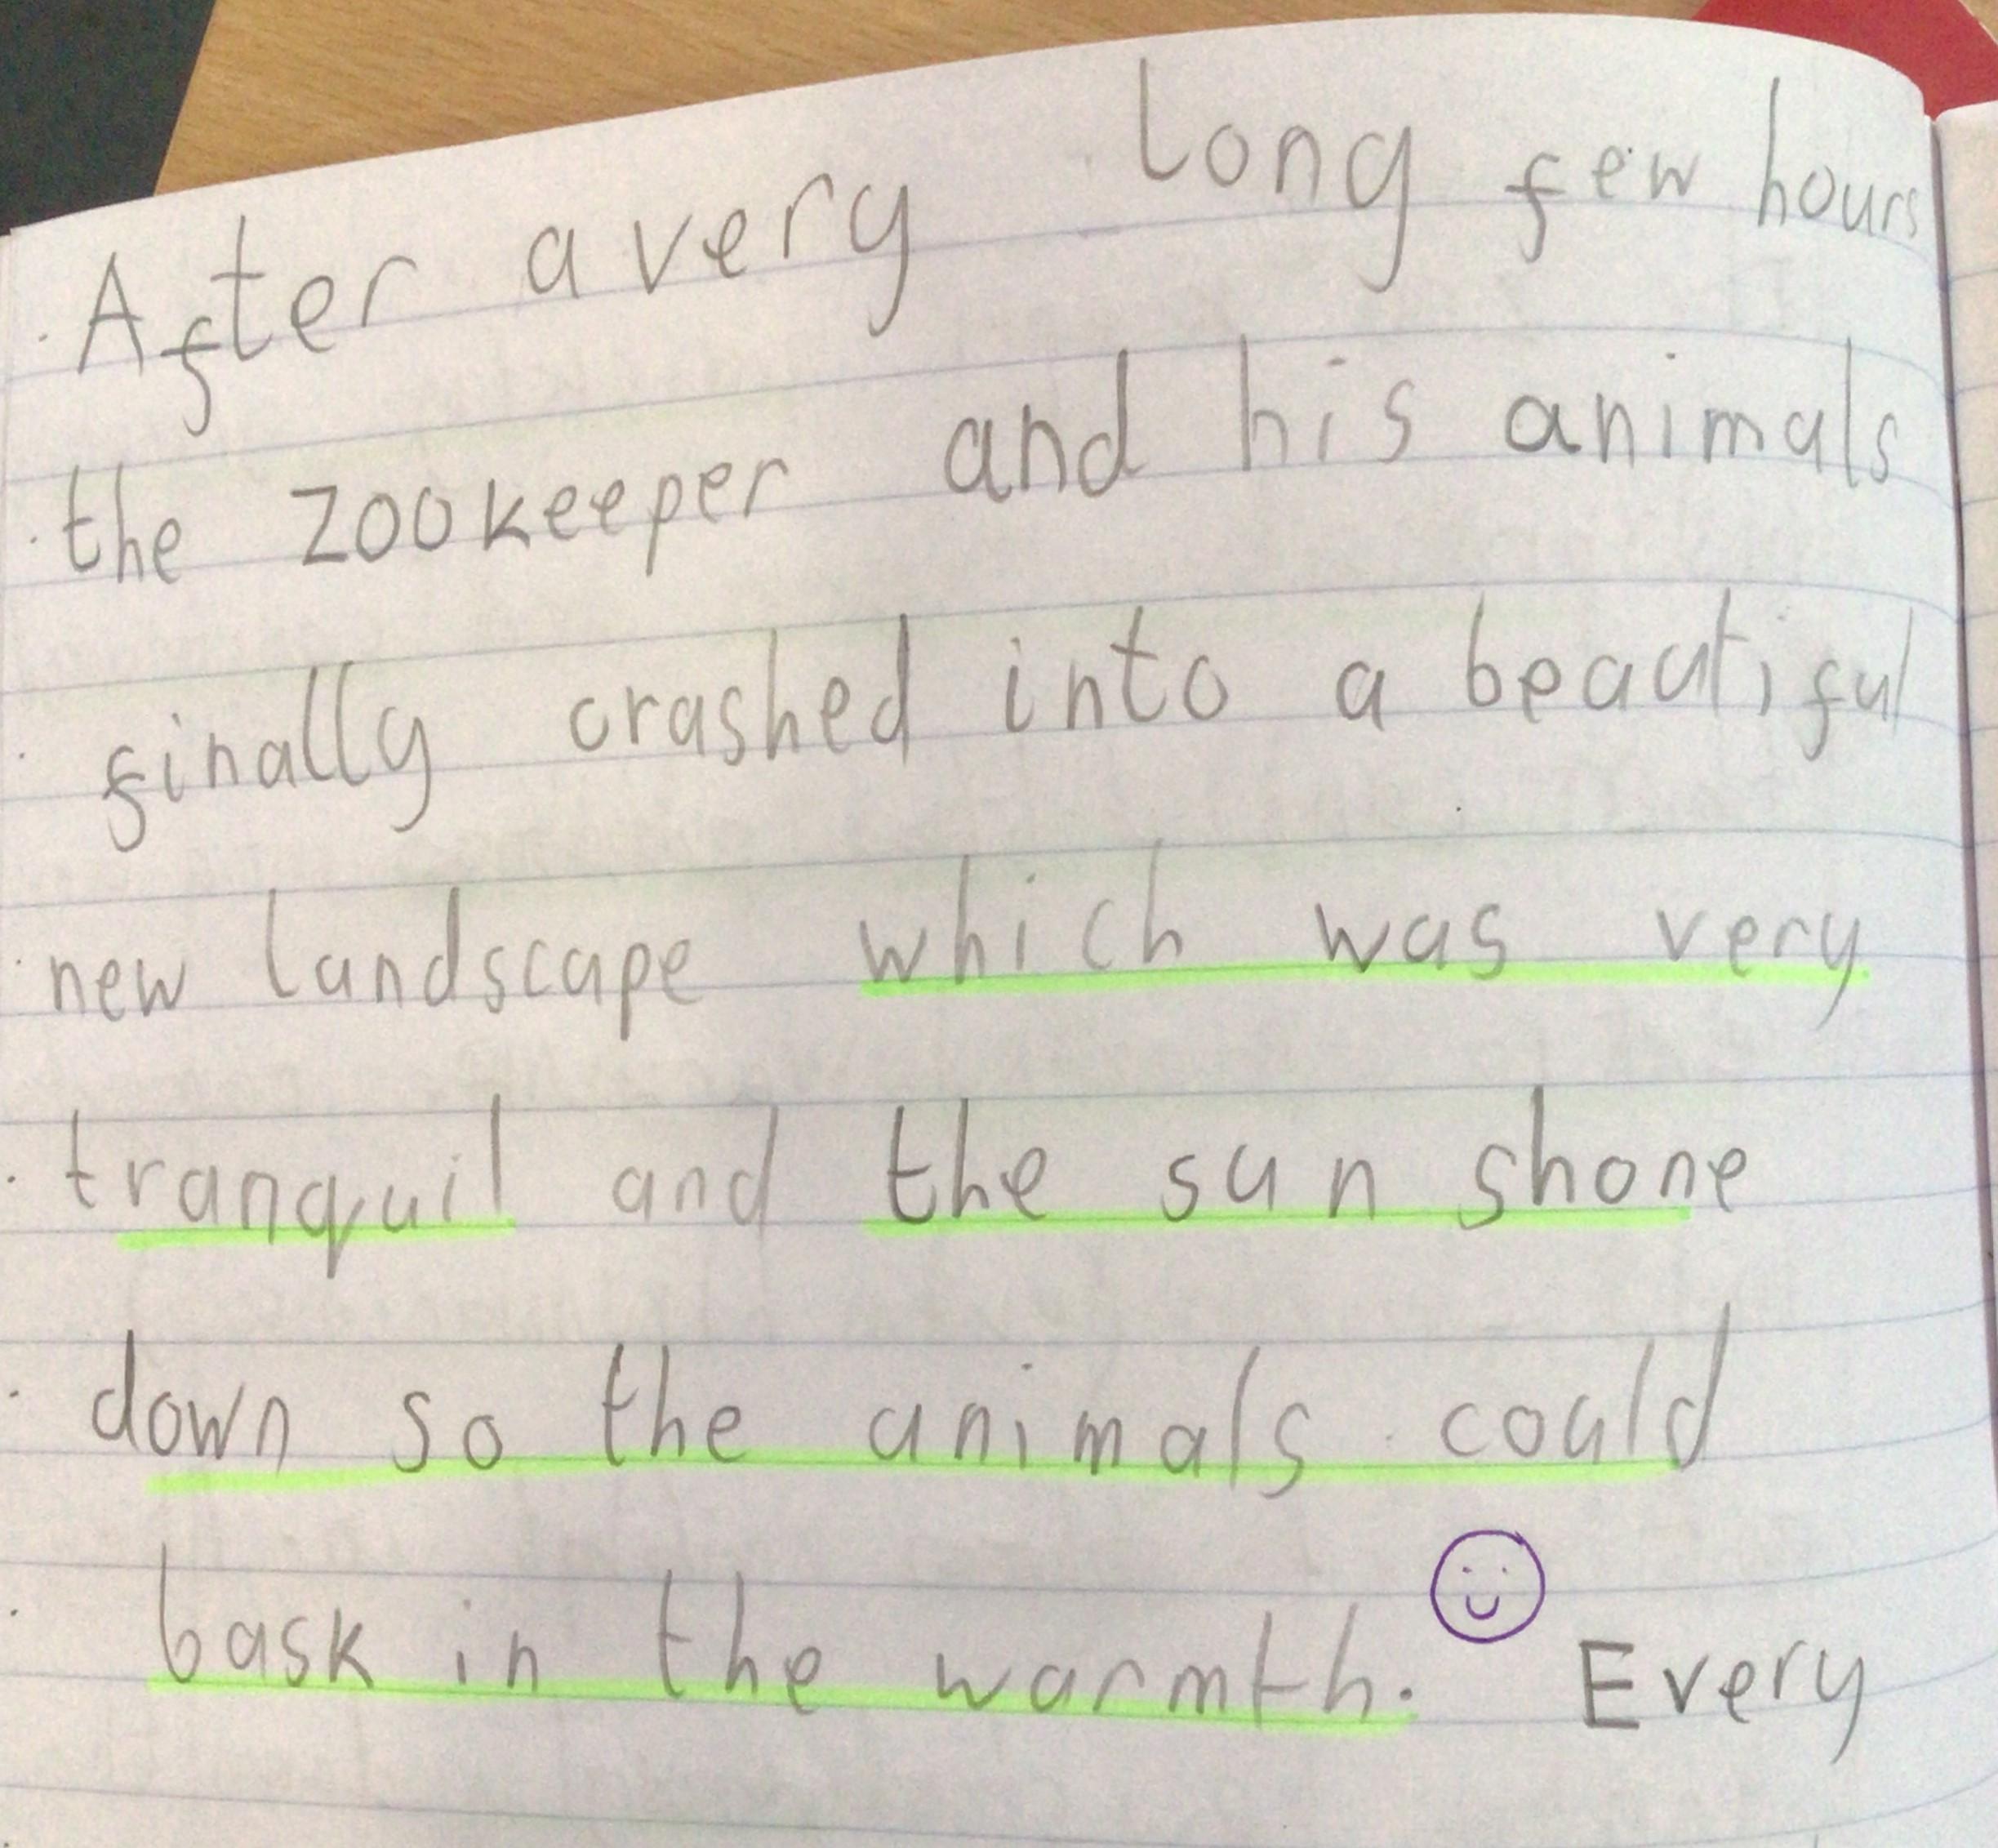 After a very long few hours
the zookeeper and his animals
finally crashed into a beautiful
new landscape which was very
tranquil and the sun shone
down so the animals could
bask in the warmth. Every